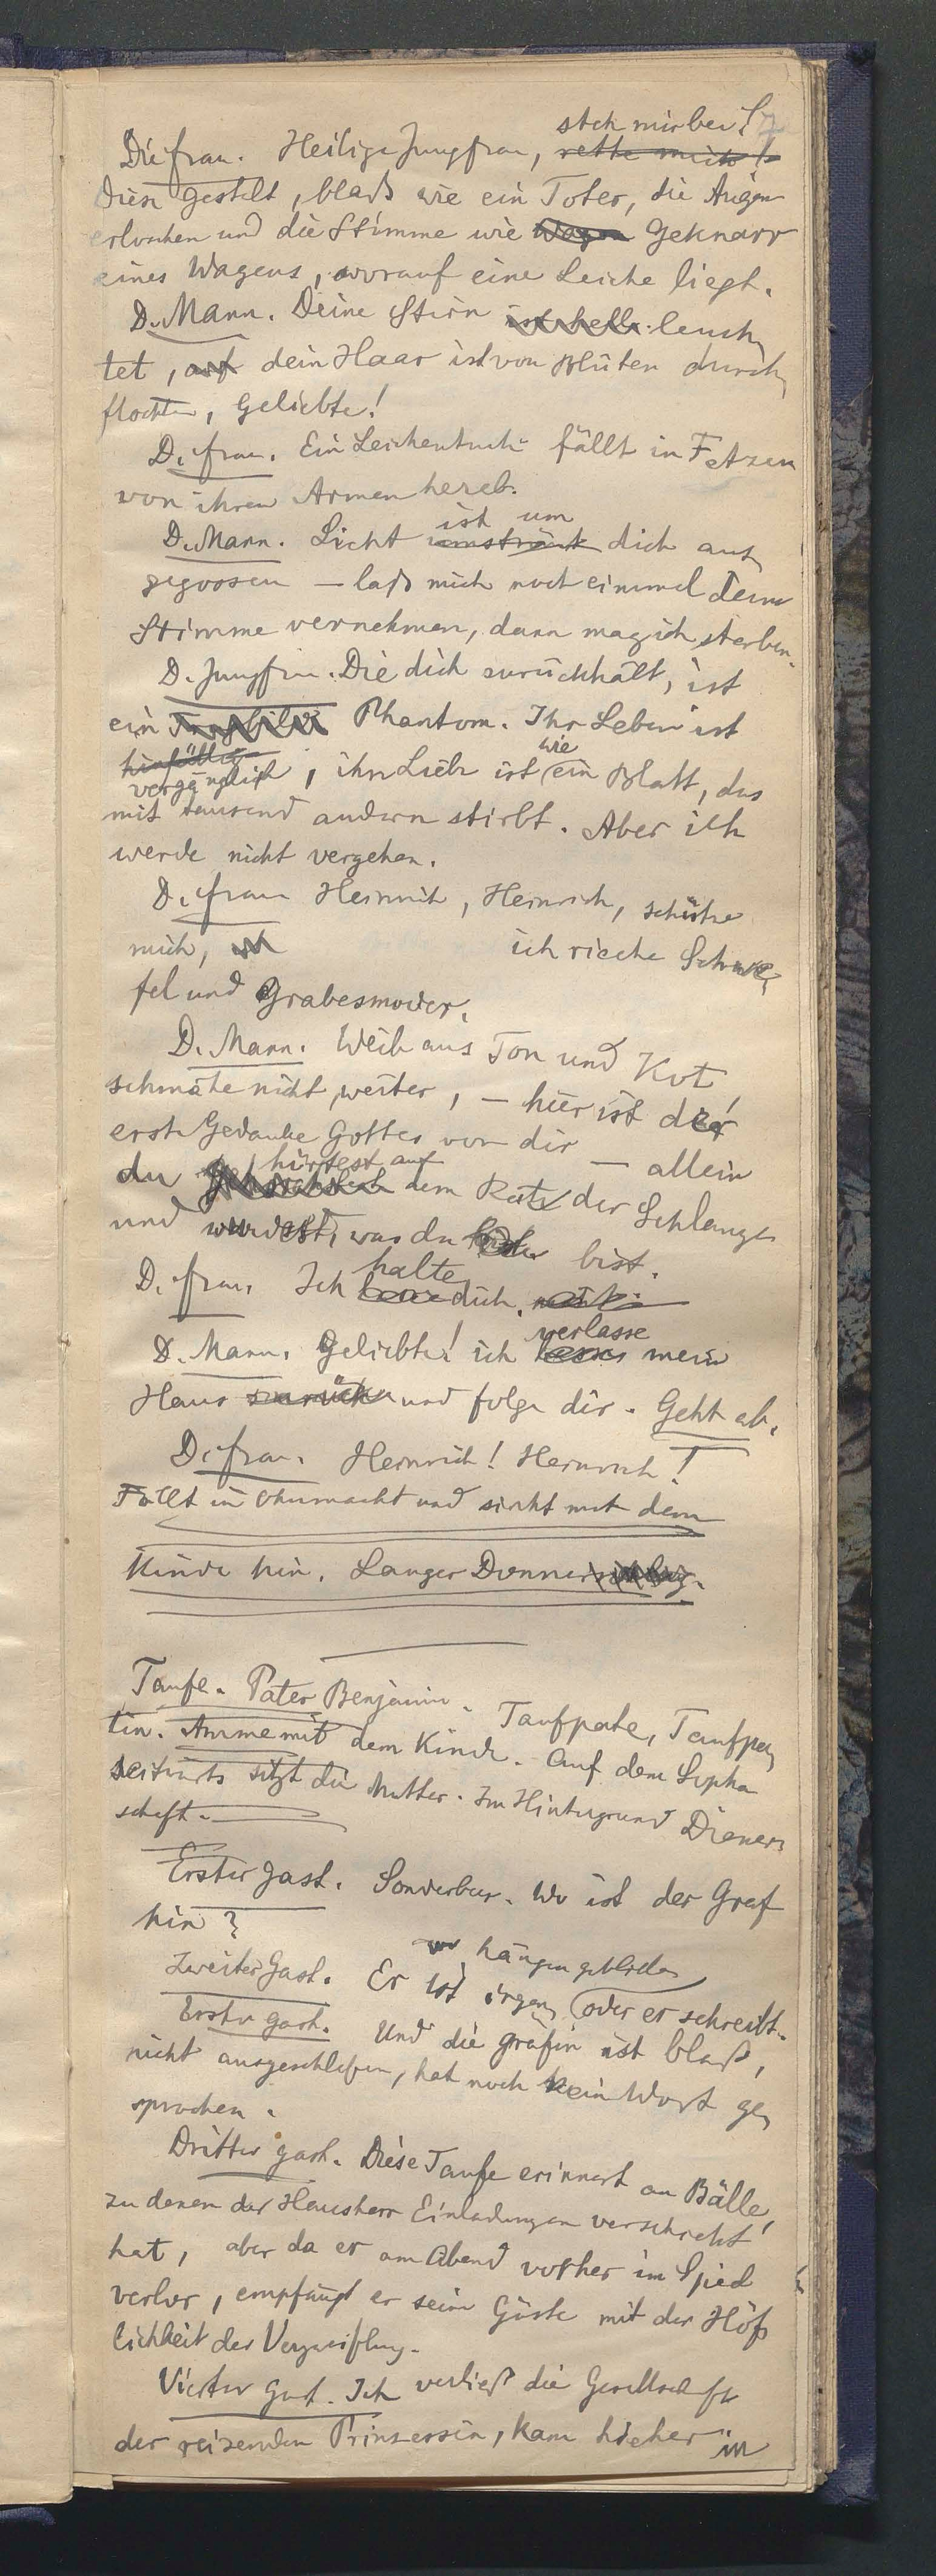 steh mir bei!
Die Frau. Heilige Jungfrau, rette mich!
Diese Gestalt, blaß wie ein Toter, die Augen
erloschen und die Stimme wie Wagen Geknarr
eines Wagens, worauf eine Leiche liegt.
D. Mann. Deine Stirn ist hell leuch
tet, auf dein Haar ist von Blüten durch
flochten, Geliebte!
D. Frau. Ein Leichentuch fällt in Fetzen
von ihren Armen herab.
ist um
D. Mann. Licht umströmt dich aus
gegossen – laß mich noch einmal deine
Stimme vernehmen, dann mag ich sterben.
D. Jungfrau. Die dich zurückhält, ist
ein Trugbild Phantom. Ihr Leben ist
hinfällig wie
vergänglich, ihre Liebe ist ein Blatt, das
mit tausend andern stirbt. Aber ich
werde nicht vergehen.
D. Frau Heinrich, Heinrich, schütze
mich, ich rieche Schwe
fel und Grabesmoder.
D. Mann. Weib aus Ton und Kot
schmähe nicht weiter, – hier ist der
erste Gedanke Gottes von dir – allein
hörtest auf
du dem Rate der Schlange
und wurdest, was du bist.
halte
D. Frau. Ich lasse dich. nicht.
verlasse
D. Mann. Geliebte! ich lasse mein
Haus zurück und folge dir. Geht ab.
D. Frau. Heinrich! Heinrich!
Fällt in Ohnmacht und sinkt mit dem
Kinde hin. Langer Donnerschlag.
Taufe. Pater Benjamin. Taufpate, Taufpa
tin. Amme mit dem Kinde. Auf dem Sopha
seitwärts sitzt die Mutter. Im Hintergrund Diener
schaft.
Erster Gast. Sonderbar. Wo ist der Graf
hin?
wo hängen geblieben
Zweiter Gast. Er ist irgend oder er schreibt.
Erster Gast. Und die Gräfin ist blaß,
nicht ausgeschlafen, hat noch kein Wort ge
sprochen.
Dritter Gast. Diese Taufe erinnert an Bälle,
zu denen der Hausherr Einladungen verschickt
hat, aber da er am Abend vorher im Spiel
verlor, empfängt er seine Gäste mit der Höf
lichkeit der Verzweiflung.
Vierter Gast. Ich verließ die Gesellschaft
der reizenden Prinzessin, kam hieher in